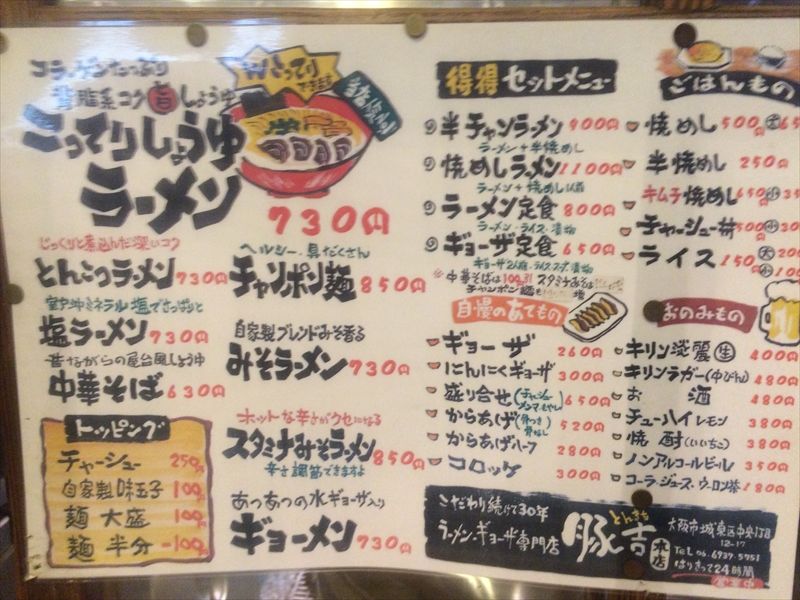 コラーゲンたっぷり
背脂系コク旨しょうゆ
こってりしょうゆ
ラーメン
730円
じっくりと煮込んだ深いコク
とんこつラーメン 730円
塩でさっぱりと
塩ラーメン 730円
昔ながらの屋台風しょうゆ
中華そば 630円
ヘルシー・具だくさん
チャンポン麺 850円
自家製ブレンドみそ香る
みそラーメン 730円
ホットな辛さがクセになる
スタミナみそラーメン 850円
辛さ調節できますよ
あつあつの水ギョーザ入り
ギョーメン 730円
トッピング
チャーシュー 250円
自家製味玉子 100円
麺大盛 100円
麺半分 -100円
得得セットメニュー
半チャンラーメン 900円
ラーメン+半焼めし
焼めしラーメン 1100円
ラーメン+焼めし1人前
ラーメン定食 800円
ラーメン・ライス・漬物
ギョーザ定食 650円
ギョーザ2人前・ライス・スープ・漬物
※中華そばは100円引 スタミナみそは
チャンポン麺も 増
自慢のあてもの
ギョーザ 260円
にんにくギョーザ 300円
盛り合せ(チャーシューメンマもやし) 650円
からあげ(骨つき骨なし) 520円
からあげハーフ 280円
コロッケ 300円
ごはんもの
焼めし 500円 大65
半焼めし 250円
キムチ焼めし 650円 小35
チャーシュー丼 500円 小30
ライス 150円 大200 小100
おのみもの
キリン淡麗生 400円
キリンラガー(中びん) 480円
お酒 480円
チューハイレモン 380円
焼酎(いいちこ) 380円
ノンアルコールビール 350円
コーラ・ジュース・ウーロン茶 180円
こだわり続けて30年
ラーメン・ギョーザ専門店
とんきち
豚吉 本店
大阪市城東区中央1丁目
12-17
TEL 06-6937-5951
はりきって24時間
営業中